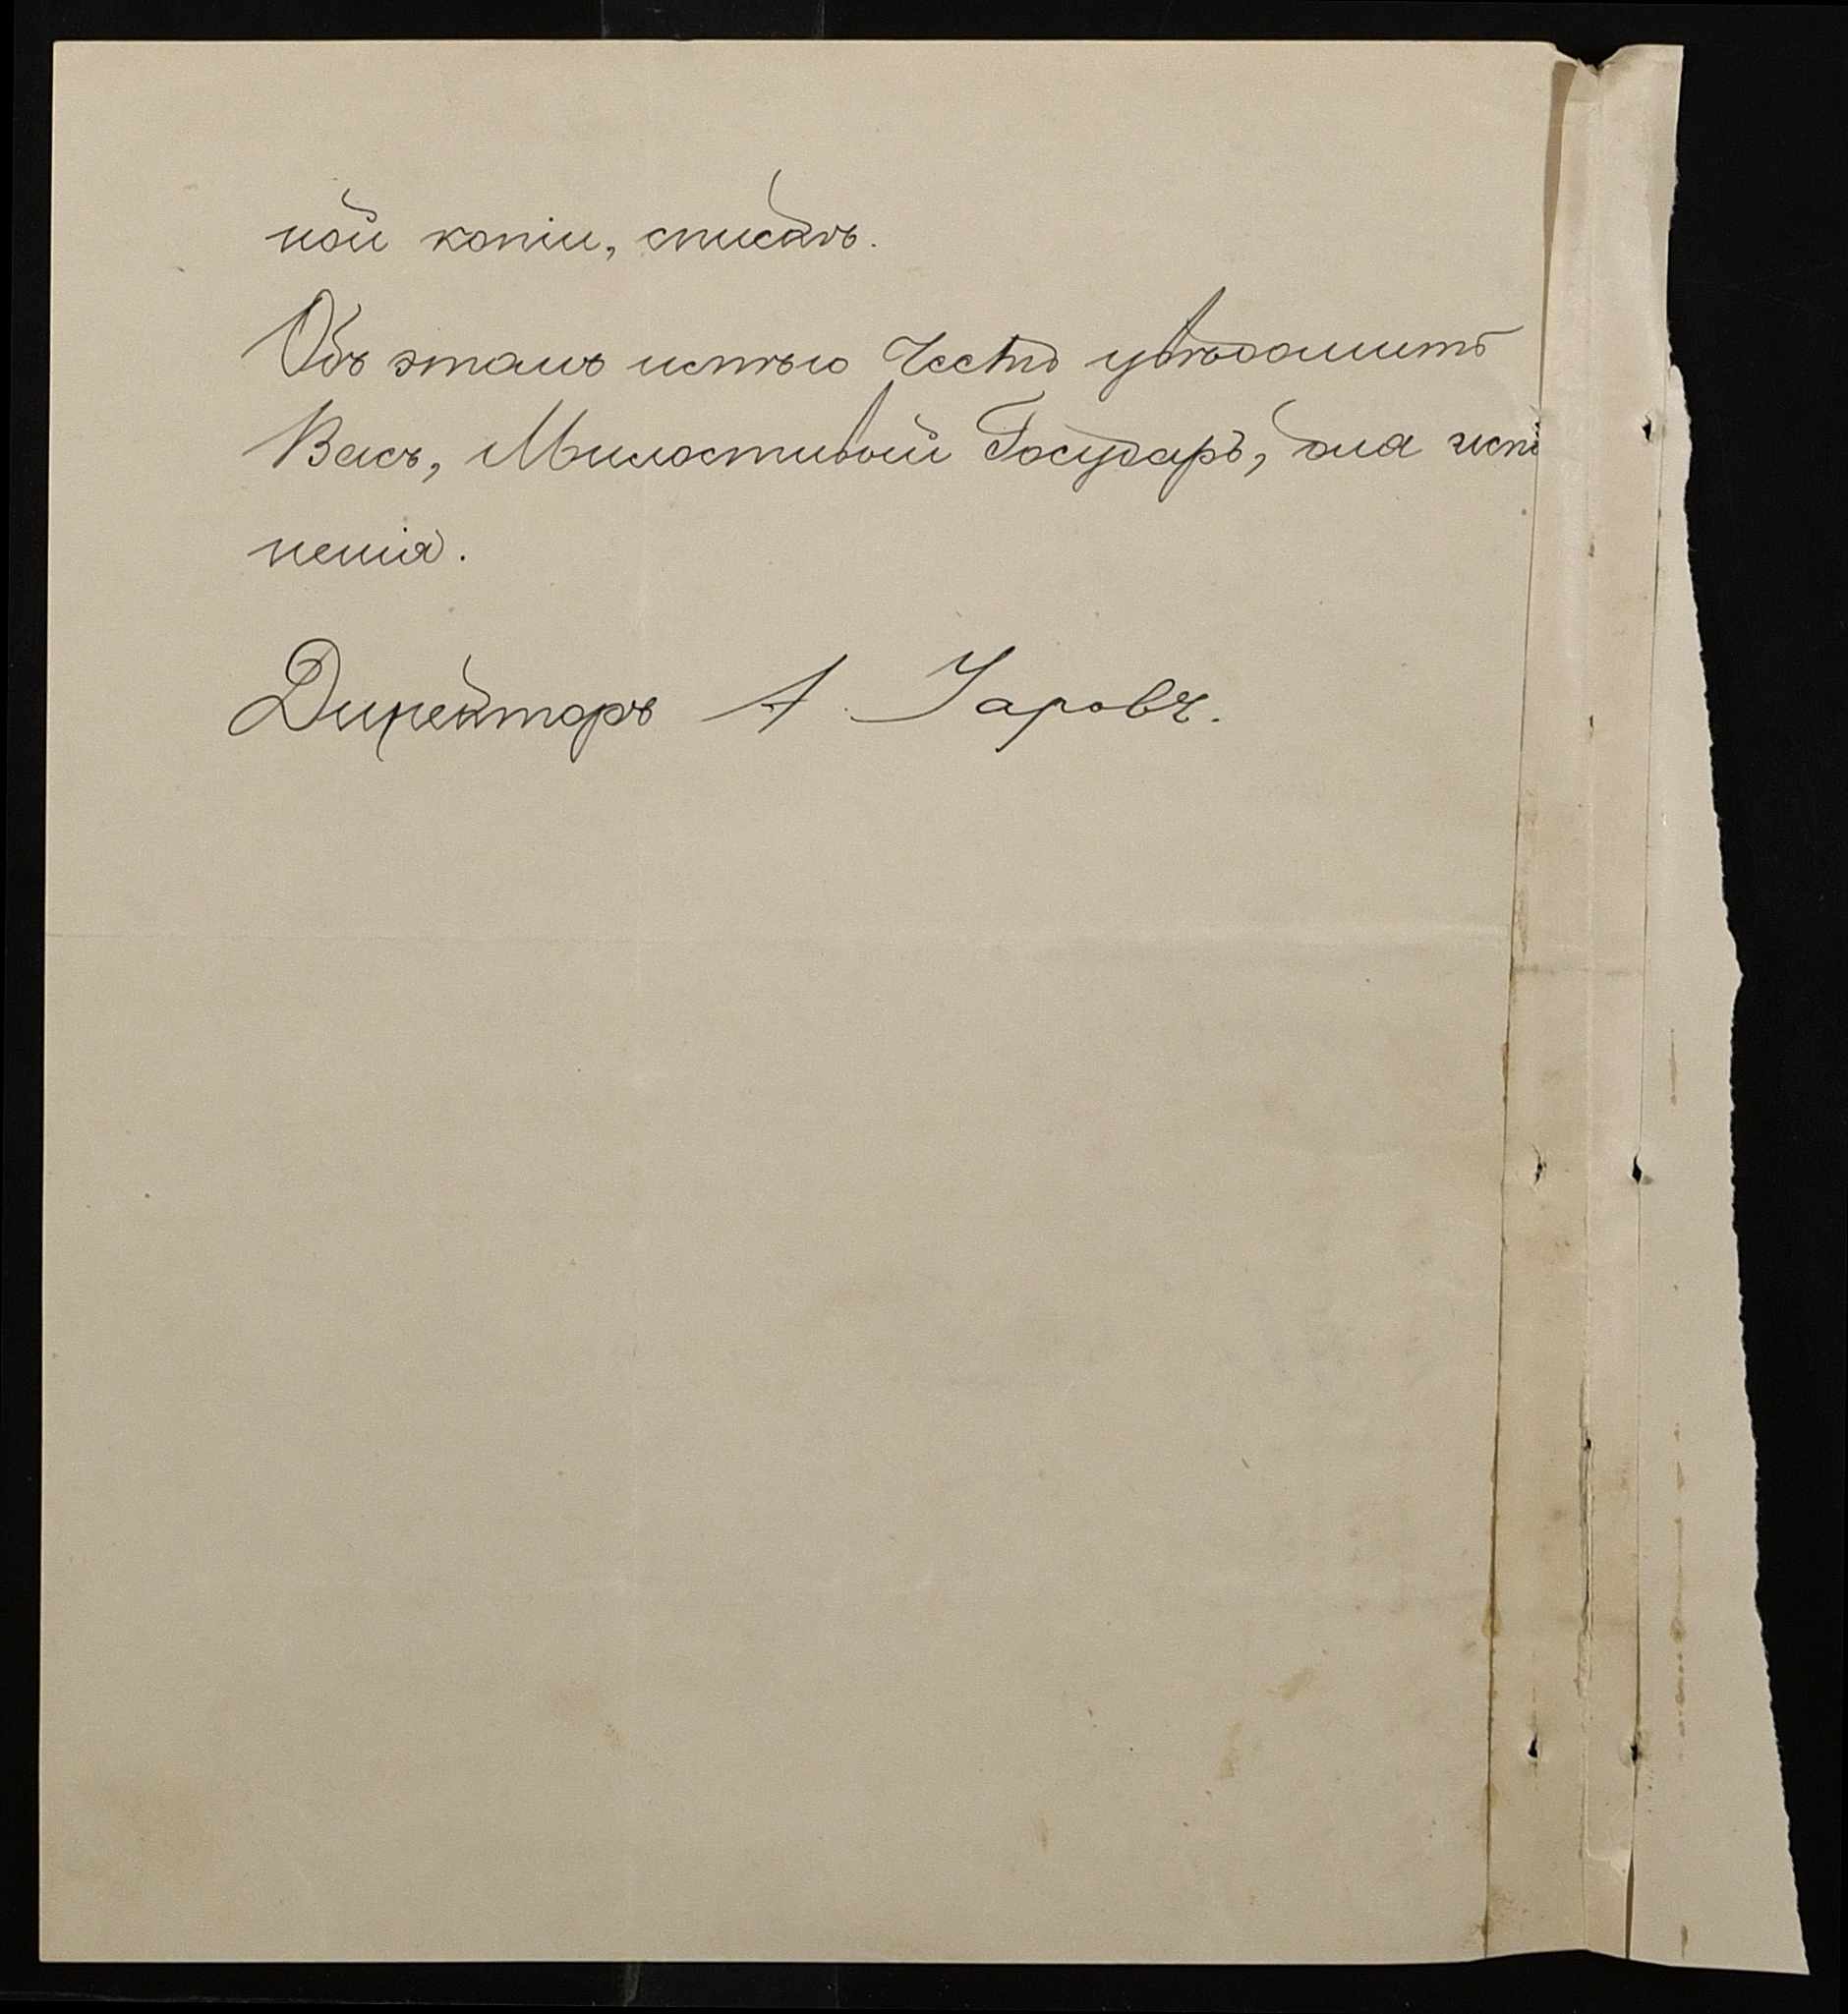 ной копіи, списавъ.
Объ этомъ имѣю Честь увѣдомить
Васъ, Милостивый Государь, для испо
ненія.
Директоръ А.